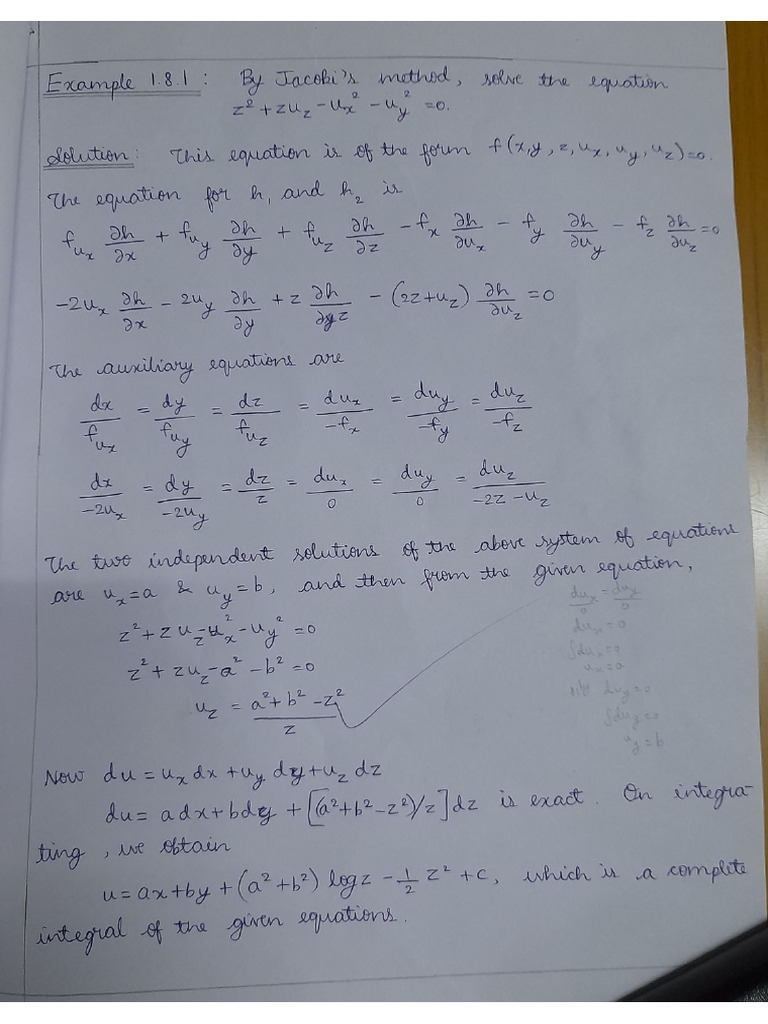 Example 1.8.1 : By Jacobi's method, solve the equation
z² + zu_z - u_x² - u_y² = 0.
Solution: This equation is of the form f(x, y, z, u_x, u_y, u_z) = 0.
The equation for h₁ and h₂ is
f_{u_x} ∂h/∂x + f_{u_y} ∂h/∂y + f_{u_z} ∂h/∂z - f_x ∂h/∂u_x - f_y ∂h/∂u_y - f_z ∂h/∂u_z = 0
-2u_x ∂h/∂x - 2u_y ∂h/∂y + z ∂h/∂z - (2z + u_z) ∂h/∂u_z = 0
The auxiliary equations are
dx/f_{u_x} = dy/f_{u_y} = dz/f_{u_z} = du_x/-f_x = du_y/-f_y = du_z/-f_z
dx/-2u_x = dy/-2u_y = dz/z = du_x/0 = du_y/0 = du_z/-2z - u_z
The two independent solutions of the above system of equations
are u_x = a & u_y = b, and then from the given equation,
z² + zu_z - u_x² - u_y² = 0
z² + zu_z - a² - b² = 0
u_z = a² + b² - z² / z
du_x/0 = du_y/0
du_x = 0
∫du_x = 0
u_x = a
du_y = 0
∫du_y = 0
u_y = b
Now du = u_x dx + u_y dy + u_z dz
du = a dx + b dy + [(a² + b² - z²)/z] dz is exact. On integra-
ting, we obtain
u = ax + by + (a² + b²) log z - 1/2 z² + c, which is a complete
integral of the given equations.